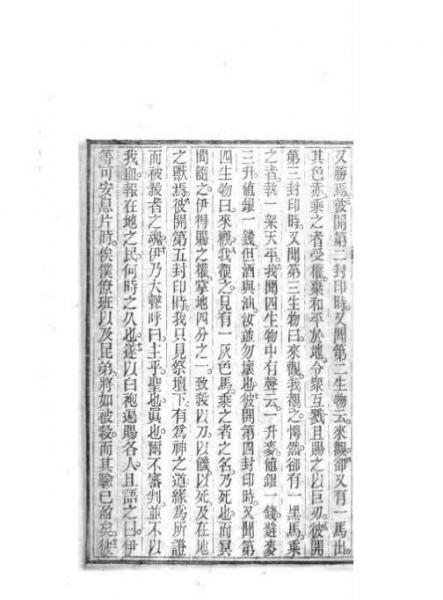 又勝焉彼開第二封印時又聞第二生物云來觀卻又有一馬出
其色赤乘之者受權棄和平於地令眾互戮且賜之以巨刃彼開
第三封印時又聞第三生物曰來觀我觀之愕然卻有一黑馬乘
之者執一架天平我聞四生物中有聲云一升麥値銀一錢麰麥
三升値銀一錢但酒與油汝並勿壞也彼開第四封印時又聞第
四生物曰來觀我觀之見有一灰色馬乘之者之名乃死也而冥
間隨之伊得賜之權掌地四分之一致殺以刀以饑以死及在地
之獸焉彼開第五封印時我只見祭壇下有為神之道緣為所證
而被殺者之魂伊乃大聲呼曰主乎聖也眞也爾不審判並不以
我血報在地之民何時之久也遂以白袍遏賜各人且語之曰伊
等可安息片時俟僕僚班以及昆弟將如被殺而其驗已盈矣彼